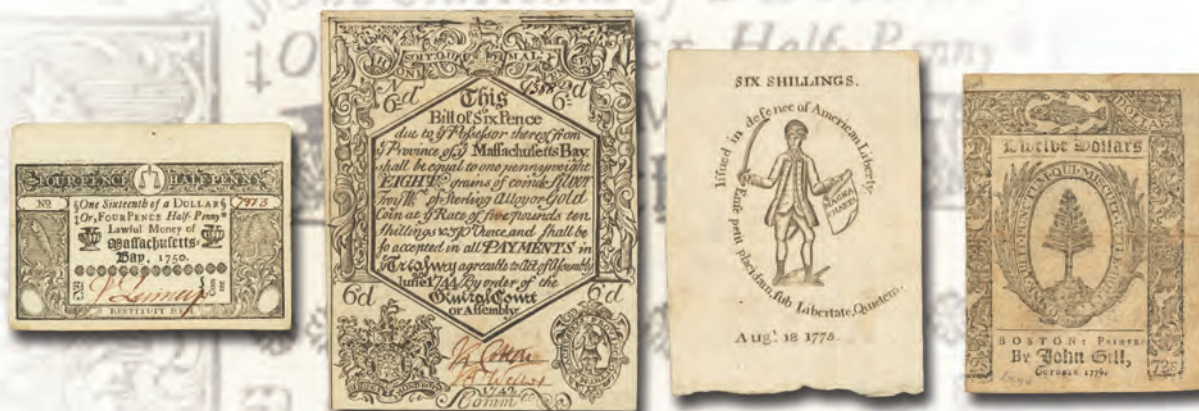 Half-Penny
FOURPENCE HALFPENNY
No
7973
One Sixteenth of a DOLLAR
Or, FOURPENCE Half-Penny
Lawful Money of
Massachusetts-
Bay, 1750.
RESTITUIT REM
HONI SOIT QUI MAL Y PENSE
No 9388
6d 6d
This
Bill of Six Pence
due to ye Possessor thereof from
ye Province of ye Massachusetts Bay
shall be equal to one pennyweight
EIGHT grains of coin'd SILVER
Troy Wt. of Sterling Alloy or Gold
Coin at ye Rate of five pounds ten
shillings Ounce and shall be
so accepted in all PAYMENTS in
ye Treasury agreeable to Act of Assembly
June 1744 By order of the
General Court
or Assembly
6d 6d
1740
Commttee
SIX SHILLINGS.
Issued in defence of American Liberty.
Ense petit placidam, sub Libertate, Quietem.
MAGNA CHARTA
Augt. 18 1775.
DOLLARS
Twelve Dollars
OMNE TULIT PUNCTUM QUI MISCUIT UTILE DULCI
BOSTON: Printed
By John Gill,
OCTOBER 1776.